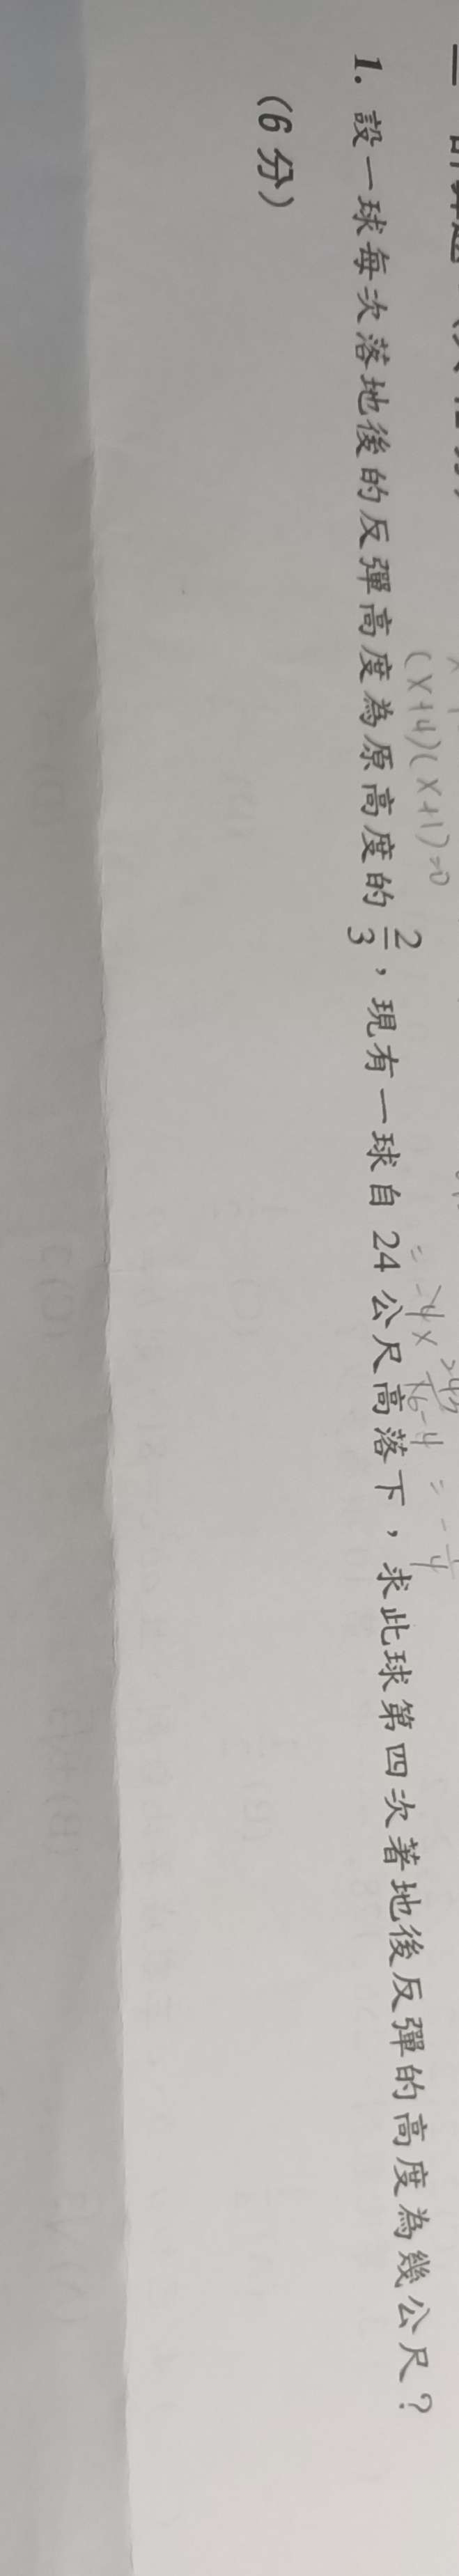 (x+4)(x+1)=0
1. 設一球每次落地後的反彈高度為原高度的 2/3，現有一球自 24 公尺高落下，求此球第四次著地後反彈的高度為幾公尺？
(6 分)